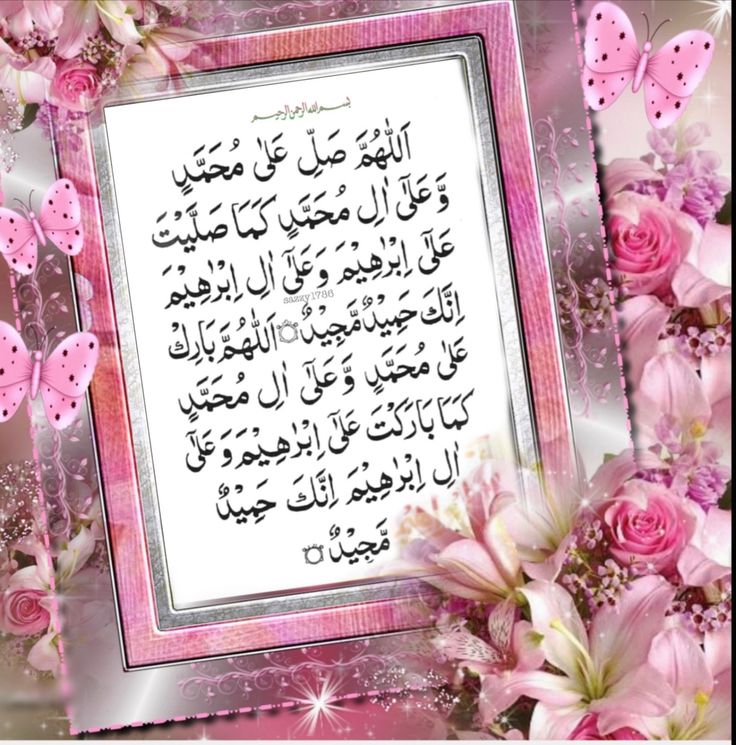 بسم الله الرحمن الرحيم
اَللّٰهُمَّ صَلِّ عَلٰى مُحَمَّدٍ
وَّعَلٰٓى اٰلِ مُحَمَّدٍ كَمَا صَلَّيْتَ
عَلٰٓى اِبْرٰهِيْمَ وَعَلٰٓى اٰلِ اِبْرٰهِيْمَ
sazzy1786
اِنَّكَ حَمِيْدٌ مَّجِيْدٌ۝ اَللّٰهُمَّ بَارِكْ
عَلٰى مُحَمَّدٍ وَّعَلٰٓى اٰلِ مُحَمَّدٍ
كَمَا بَارَكْتَ عَلٰٓى اِبْرٰهِيْمَ وَعَلٰٓى
اٰلِ اِبْرٰهِيْمَ اِنَّكَ حَمِيْدٌ
مَّجِيْدٌ۝